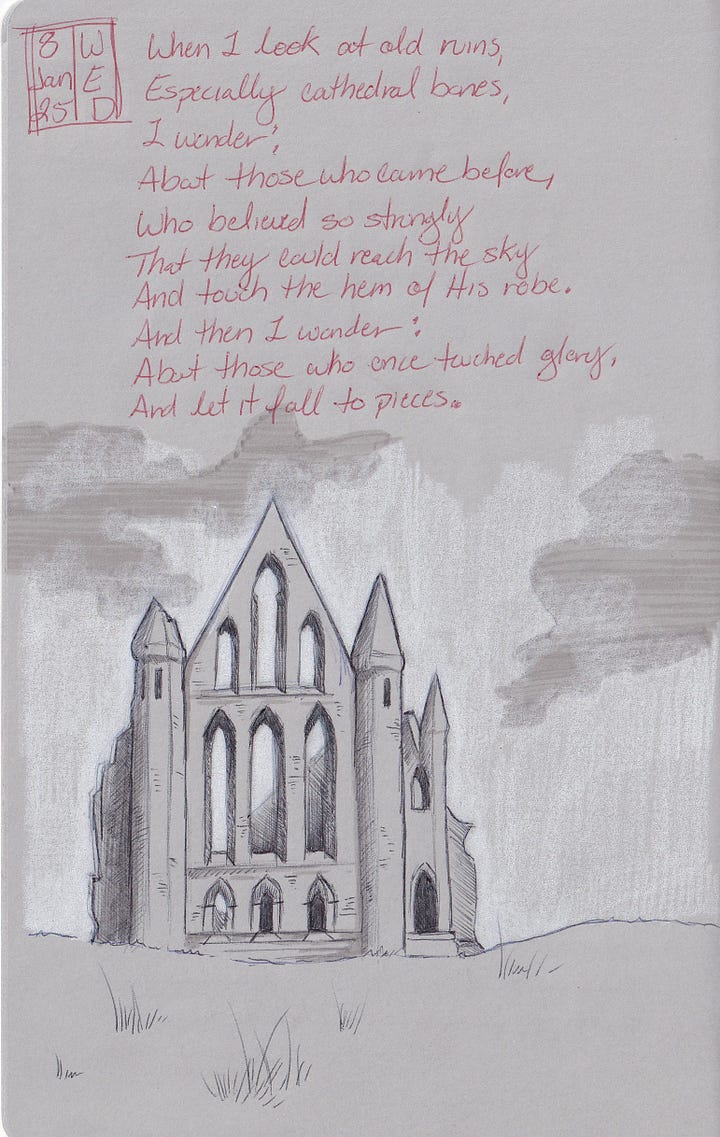 8 W
Jan E
25 D
When I look at old ruins,
Especially cathedral bones,
I wonder:
About those who came before,
Who believed so strongly
That they could reach the sky
And touch the hem of His robe.
And then I wonder:
About those who once touched glory,
And let it fall to pieces.